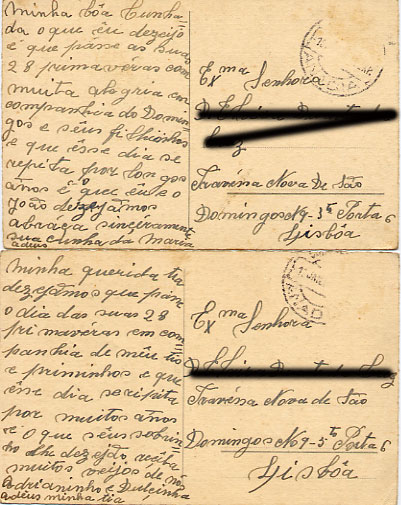 Minha bôa Cunha-
da o que eu dezeijo
é que passe as suas
28 primavéras com
muita alegria em
companhia do Domin-
gos e seus filhinhos
e que êsse dia se
repita por longos
anos é o que eu e o
João dezejâmos
abraça sinçeiramente
sua cunha da Maria
adeus
Exma Senhora
Travéssa Nova De São
Domingos Nº 9-3º Porta 6
Lisbôa
Minha querida tia
dezejâmos que pase
o dia das suas 28
primavéras em com
panhia de mêu tio
e priminhos e que
êsse dia se ripita
por muitos anos
é o que sêus sobri
nho lhe dezejão reseba
muitos veijos de nós
Adrianinho e Dulcinha
adeus minha tia
Exma Senhora
Travéssa Nova de São
Domingos Nº 9-5º Porta 6
Lisbôa